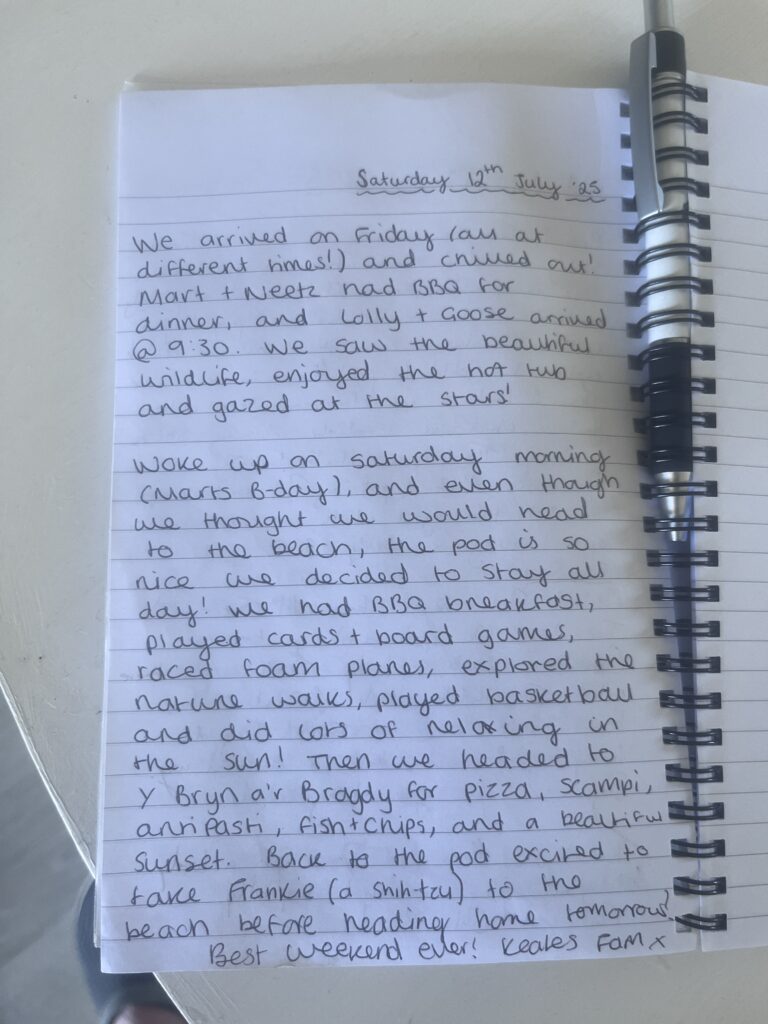 Saturday 12th July '25
We arrived on Friday (all at
different times!) and chilled out!
Mart + Neetz had BBQ for
dinner, and Lolly + Goose arrived
@ 9:30. We saw the beautiful
wildlife, enjoyed the hot tub
and gazed at the stars!
Woke up on Saturday morning
(Marts B-day), and even though
we thought we would head
to the beach, the pod is so
nice we decided to stay all
day! We had BBQ breakfast,
played cards + board games,
raced foam planes, explored the
nature walks, played basketball
and did lots of relaxing in
the sun! Then we headed to
Y Bryn a'r Bragdy for pizza, scampi,
antipasti, fish + chips, and a beautiful
sunset. Back to the pod excited to
take Frankie (a shih-tzu) to the
beach before heading home tomorrow!
Best weekend ever! Keales Fam x